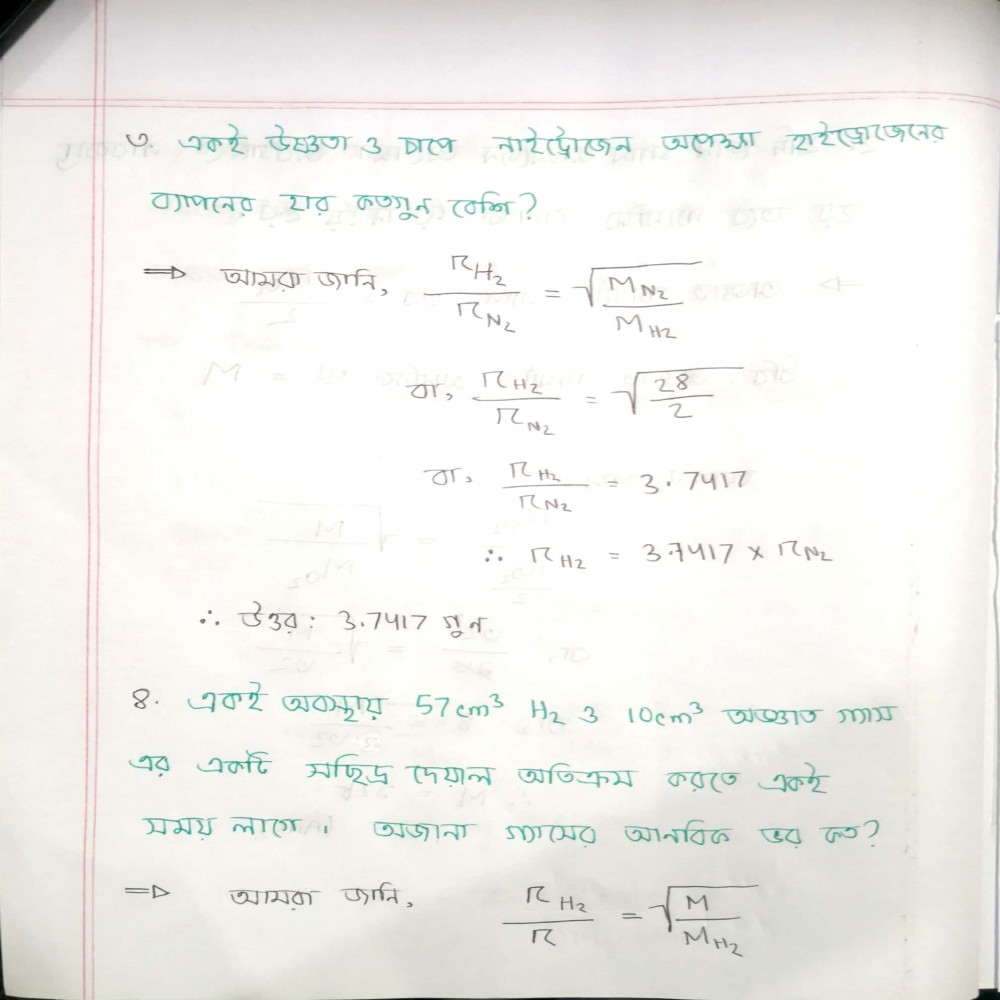 ৩. একই উষ্ণতা ও চাপে নাইট্রোজেন অপেক্ষা হাইড্রোজেনের
ব্যাপনের হার কতগুন বেশি?
⇒ আমরা জানি, r_H₂ / r_N₂ = √(M_N₂ / M_H₂)
বা, r_H₂ / r_N₂ = √(28 / 2)
বা, r_H₂ / r_N₂ = 3.7417
∴ r_H₂ = 3.7417 × r_N₂
∴ উত্তর: 3.7417 গুন
৪. একই অবস্থায় 57cm³ H₂ ও 10cm³ অজ্ঞাত গ্যাস
এর একটি সছিদ্র দেয়াল অতিক্রম করতে একই
সময় লাগে। অজানা গ্যাসের আনবিক ভর কত?
⇒ আমরা জানি, r_H₂ / r = √(M / M_H₂)